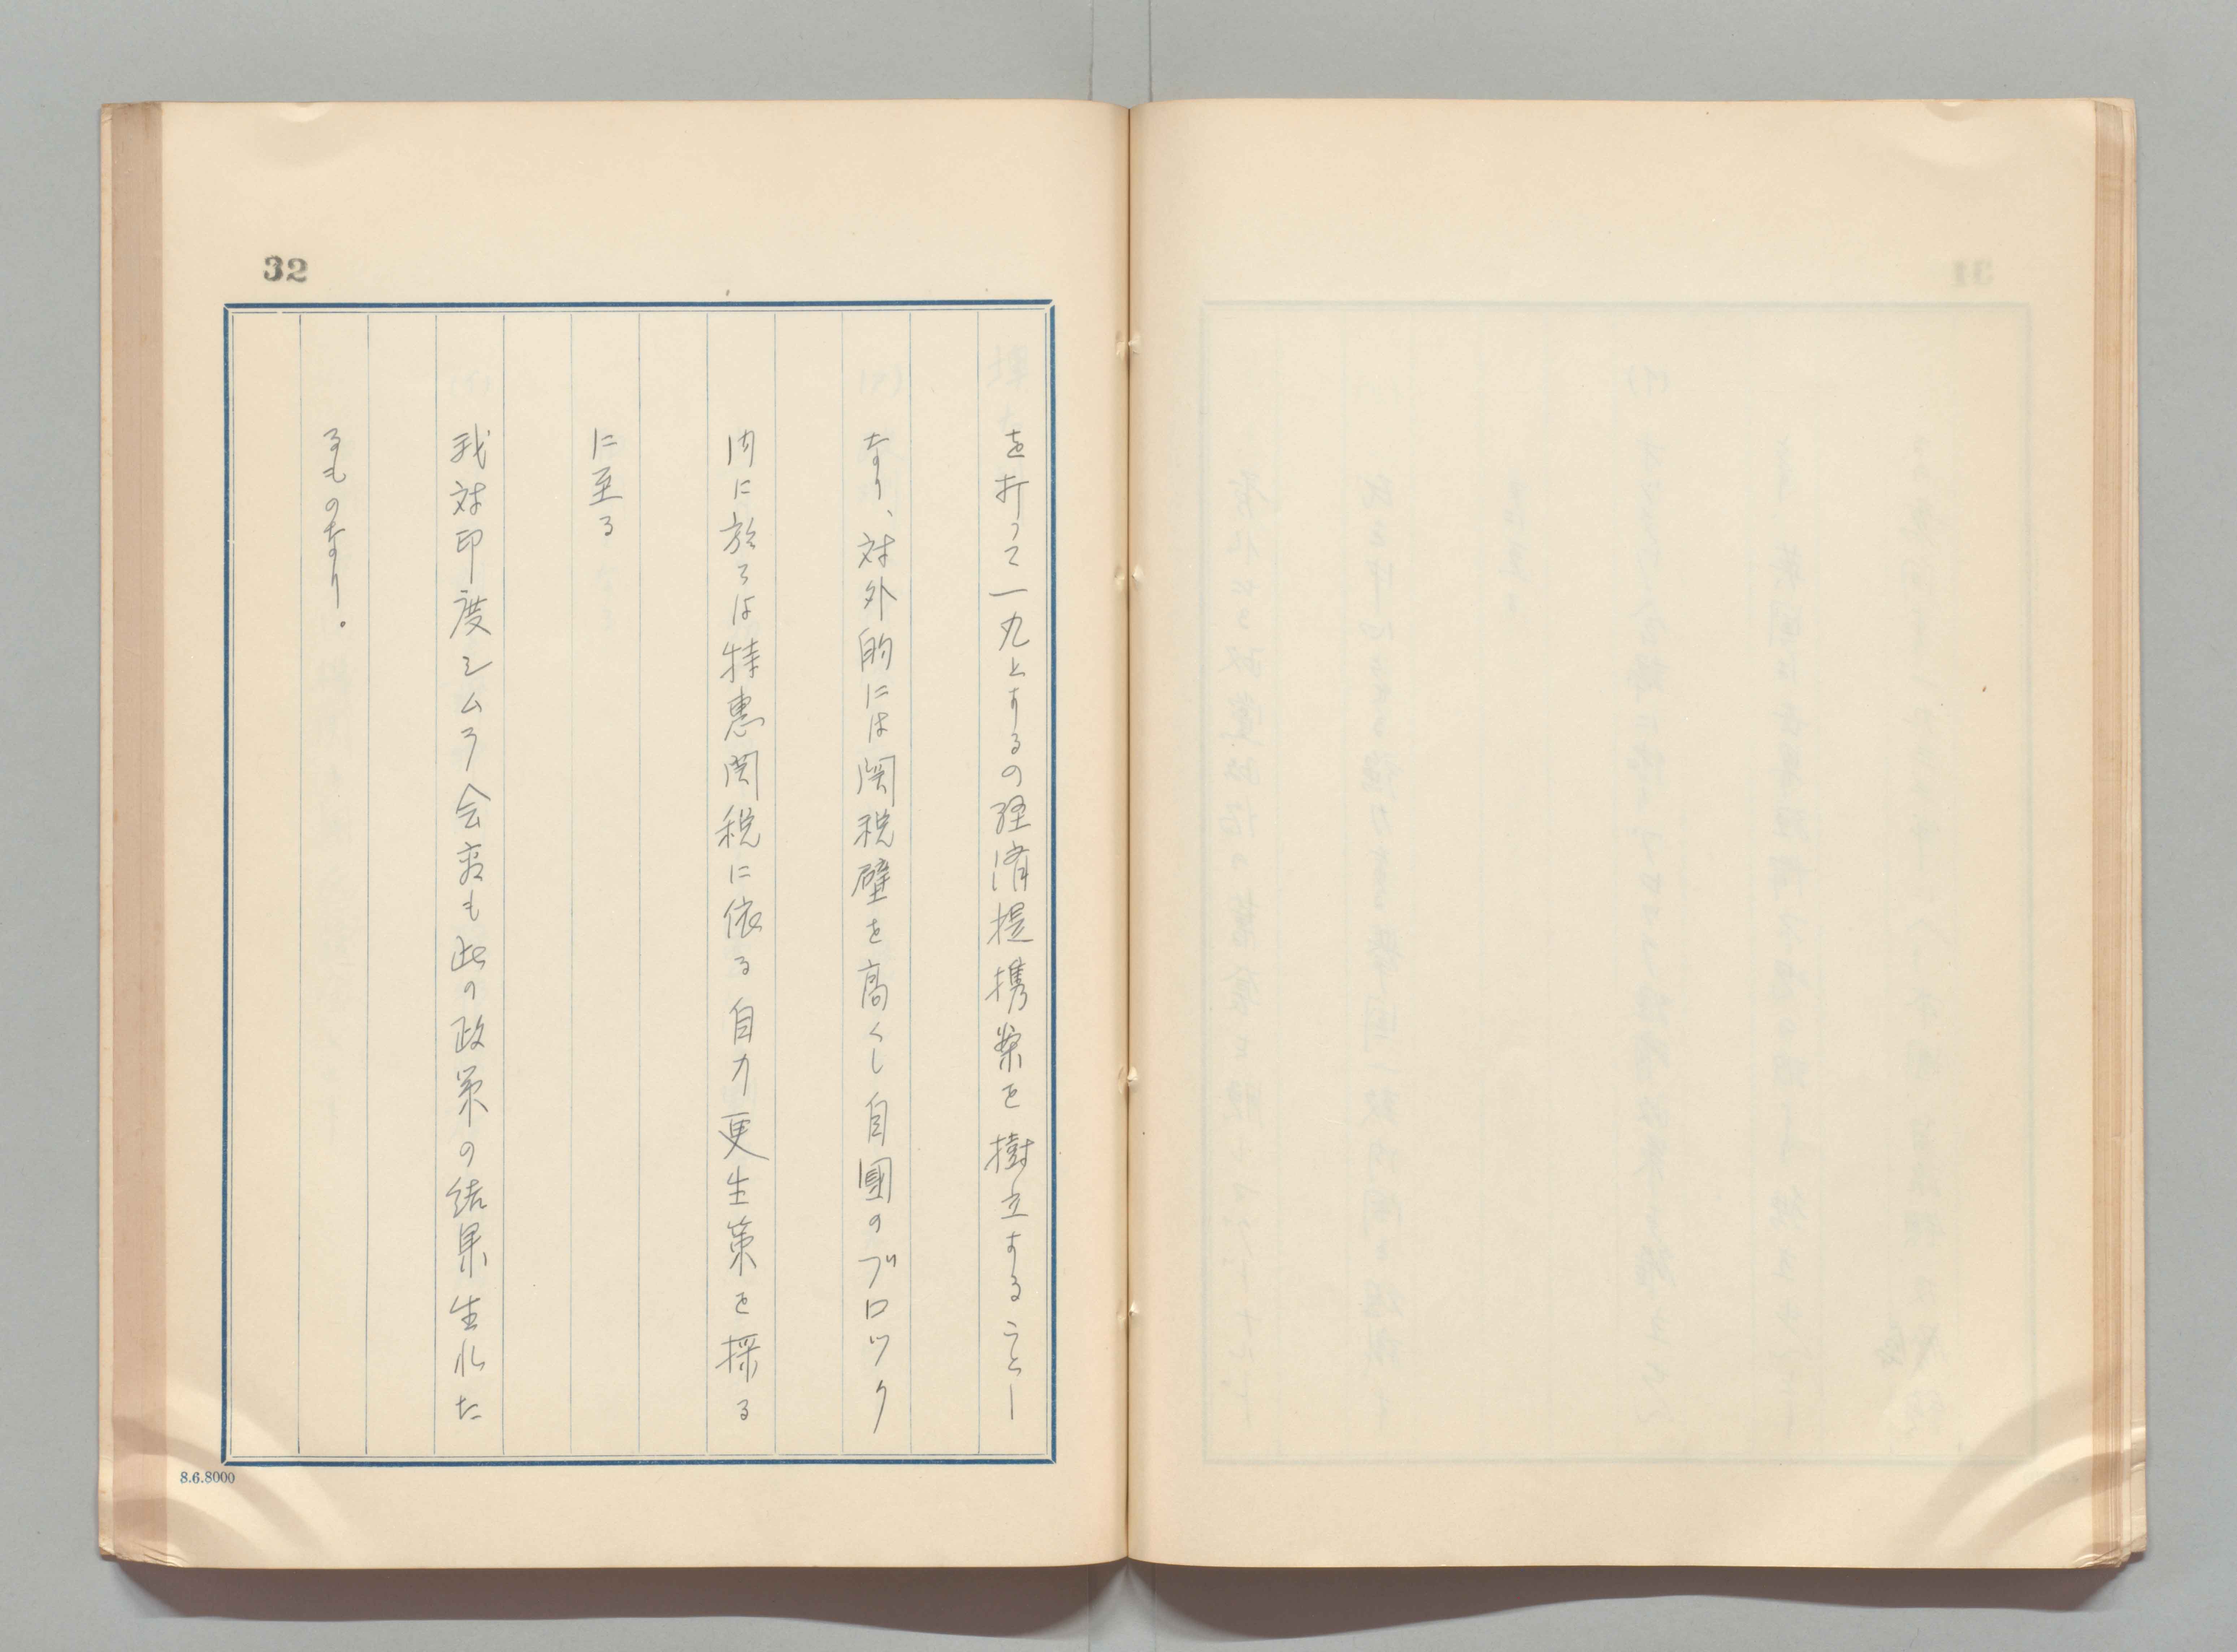 32
を打つて一丸とするの経済提携案を樹立すること
なり、対外的には関税壁を高くし自國のブロツク
内に於ては特恵関税に依る自力更生策を採る
に至る
我対印度シムラ会商も此の政策の結果生れた
るものなり。
8.6.8000